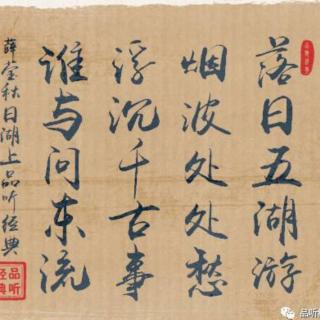 落日五湖游
烟波处处愁
浮沉千古事
谁与问东流
薛莹秋日湖上品听经典
品听
经典
品听